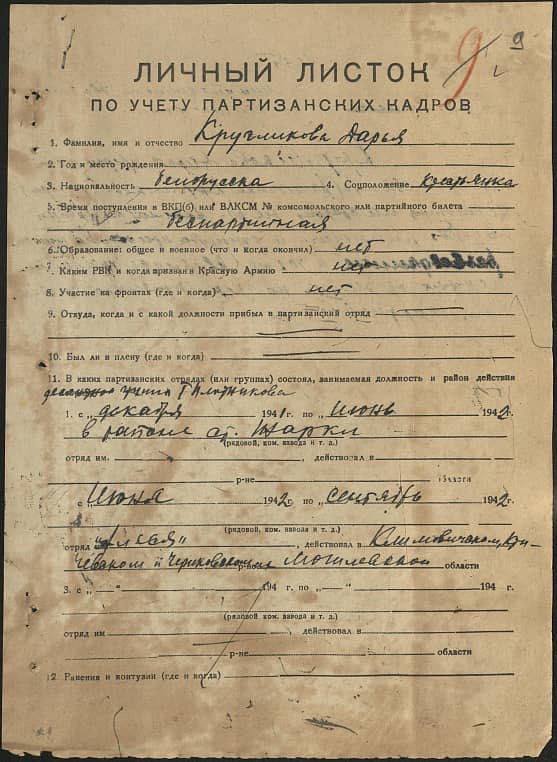 9 9
ЛИЧНЫЙ ЛИСТОК
ПО УЧЕТУ ПАРТИЗАНСКИХ КАДРОВ
1. Фамилия, имя и отчество Кругликова Дарья
2. Год и место рождения
3. Национальность белорусска 4. Соцположение крестьянка
5. Время поступления в ВКП(б) или ВЛКСМ № комсомольского или партийного билета
беспартийная
6. Образование: общее и военное (что и когда окончил) нет
7. Каким РВК и когда призван в Красную Армию нет
8. Участие на фронтах (где и когда) нет
9. Откуда, когда и с какой должности прибыл в партизанский отряд
10. Был ли в плену (где и когда)
11. В каких партизанских отрядах (или группах) состоял, занимаемая должность и район действия
группа Плотникова
1. с „декабря 1941 г. по „июнь 1942 г.
в районе ст.
(рядовой, ком. взвода и т. д.)
отряд им. , действовал в
р-не области
с „июня 1942 г. по „сентябрь 1942 г.
(рядовой, ком. взвода и т. д.)
отряд , действовал в Климовичском, Кри-
чевском и Чериковском р-не Могилевской области
3. с „—“ 194 г. по „—“ 194 г.
(рядовой, ком. взвода и т. д.)
отряд им , действовал в
р-не области
12. Ранения и контузии (где и когда)